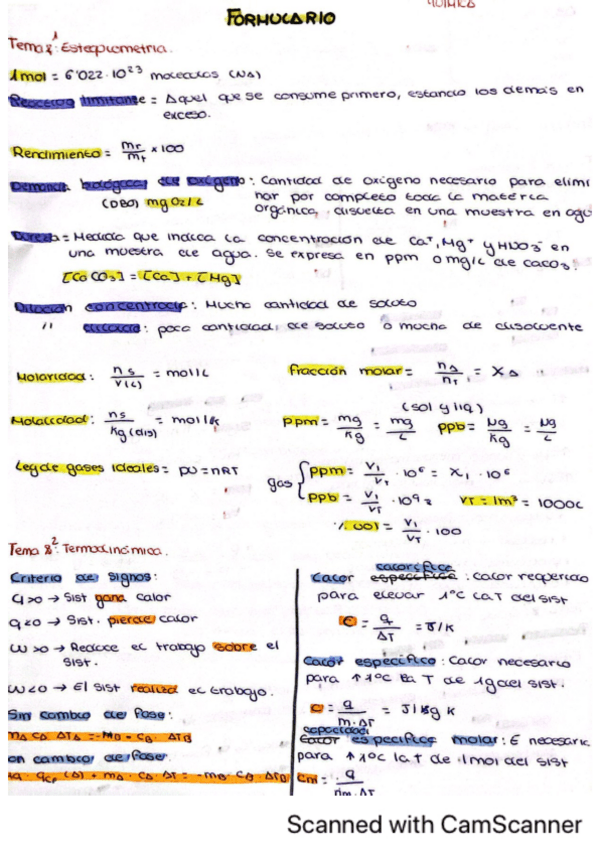 QUÍMICA
FORMULARIO
Tema 1: Estequiometria.
1 mol = 6'022·10²³ moleculas (NA)
Reactivo limitante = Aquel que se consume primero, estando los demas en
exceso.
Rendimiento = mr/mt × 100
Demanda biológica de oxígeno: Cantidad de oxigeno necesario para elimi
nar por completo toda la materia
(DBO) mg O2/L
orgánica, disuelta en una muestra en agu
Dureza = Medida que indica la concentración de Ca⁺, Mg⁺ y HNO3⁻ en
una muestra de agua. Se expresa en ppm o mg/L de CaCO3.
[CaCO3] = [Ca] + [Mg]
Dilución concentrada: Mucha cantidad de soluto
" diluida: poca cantidad de soluto o mucha de disolvente
Molaridad: ns/V(L) = mol/L
fracción molar = nA/nT = XA
(sol y liq)
Molalidad: ns/Kg(dis) = mol/K
ppm = mg/Kg = mg/L ppb = µg/Kg = µg/L
Ley de gases ideales = PV = nRT
gas { ppm = V1/VT · 10⁶ = X1 · 10⁶
ppb = V1/VT · 10⁹ VT = 1m³ = 1000L
% vol = V1/VT · 100
Tema 2: Termodinámica.
Criterio de signos:
q>0 → Sist gana calor
q<0 → Sist. pierde calor
W>0 → Realice el trabajo sobre el
sist.
W<0 → El sist realiza el trabajo.
Sin cambio de fase:
mA CA ΔTA = -MB · CB · ΔTB
on cambio de fase:
(A) + mA · CA · ΔT = -mB · CB · ΔTB
calorífica
Calor específica: calor requerido
para elevar 1°C la T del sist
C = q/ΔT = J/K
Calor específico: Calor necesario
para ↑ 1°C la T de 1g del sist.
C = q/m·ΔT = J/Kg K
capacidad
Calor específica molar: E necesaric
para ↑ 1°C la T de 1mol del sist
Cm = q/nm·ΔT
Scanned with CamScanner